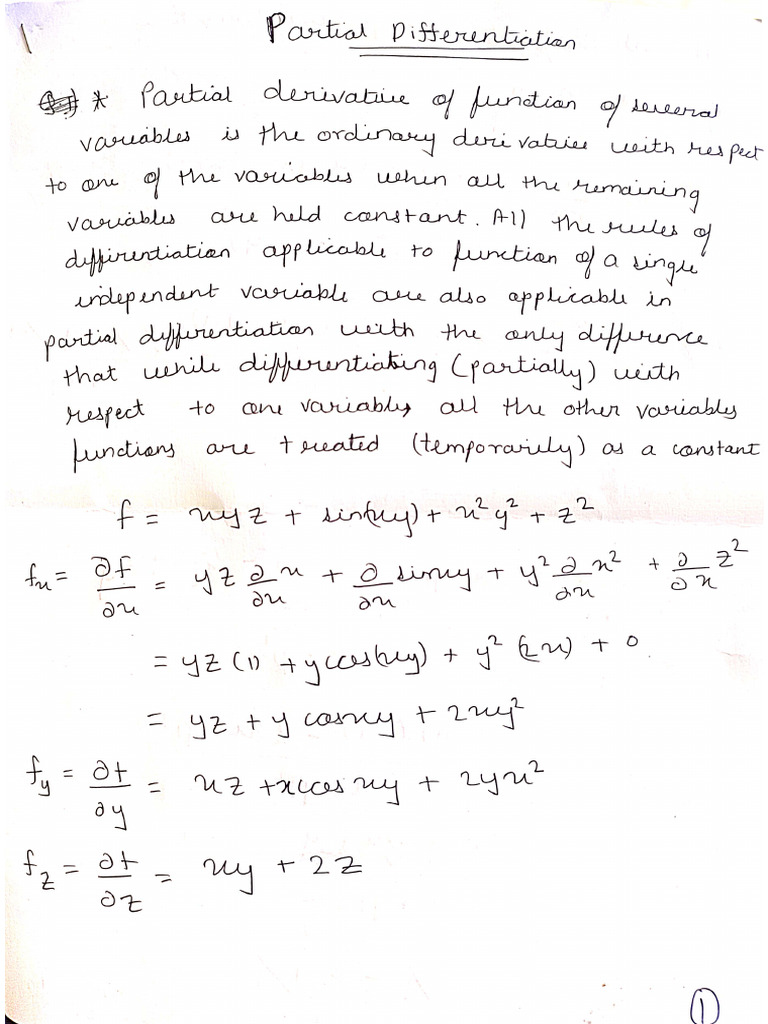 1
Partial Differentiation
* Partial derivative of function of several
variables is the ordinary derivative with respect
to one of the variables when all the remaining
variables are held constant. All the rules of
differentiation applicable to function of a single
independent variable are also applicable in
partial differentiation with the only difference
that while differentiating (partially) with
respect to one variable, all the other variables
functions are treated (temporarily) as a constant
f = xyz + sin(xy) + x²y² + z²
fx = ∂f/∂x = yz ∂/∂x x + ∂/∂x sinxy + y² ∂/∂x x² + ∂/∂x z²
= yz(1) + ycos(xy) + y²(2x) + 0
= yz + y cosxy + 2xy²
fy = ∂f/∂y = xz + xcos xy + 2yx²
fz = ∂f/∂z = xy + 2z
1